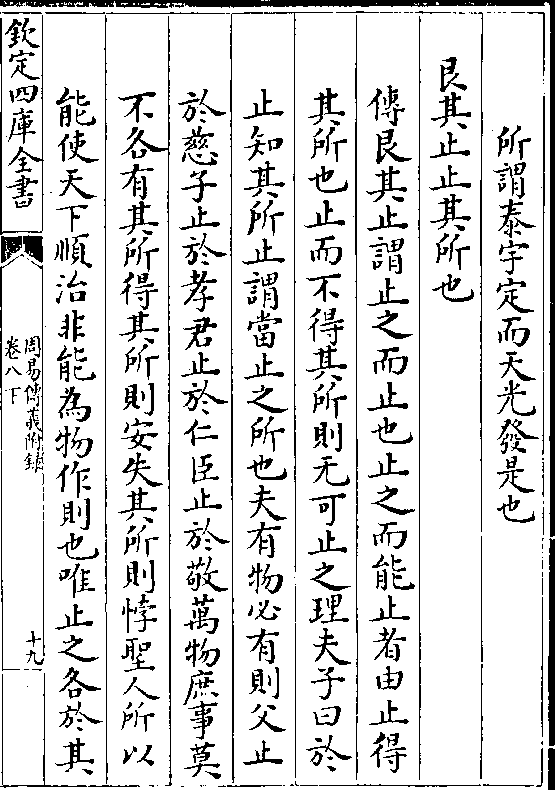 所謂泰宇定而天光發是也
艮其止止其所也
傳艮其止謂止之而止也止之而能止者由止得
其所也止而不得其所則无可止之理夫子曰於
止知其所止謂當止之所也夫有物必有則父止
於慈子止於孝君止於仁臣止於敬萬物庶事莫
不各有其所得其所則安失其所則悖聖人所以
能使天下順治非能為物作則也唯止之各於其
欽定四庫全書
周易傳義附錄
卷八下
十九